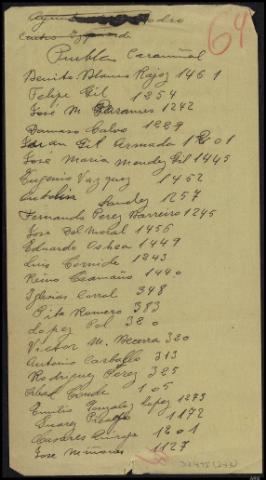 64
Puebla Caramiñal
Benito Blanco Rajoy 1461
Felipe Gil 1254
José M. 1242
Damaso Calvo 1229
Juan Gil Armada 1201
José Maria Mendez Gil 1445
Eugenio Vazquez 1452
Antolin Sanchez 1257
Fernando Perez Barreiro 1245
Jose Del Moral 1456
Eduardo Oshea 1449
Luis Cornide 1243
Reino Caamaño 1440
Iglesias Corral 348
Pita Romero 383
Lopez Pol 320
Victor M. Becerra 320
Antonio Carballo 313
Rodriguez Perez 325
Abad Conde 105
Emilio Gonzalez Lopez 1273
Suarez Picallo 1172
Casares Quiroga 1201
Jose Miñones 1127